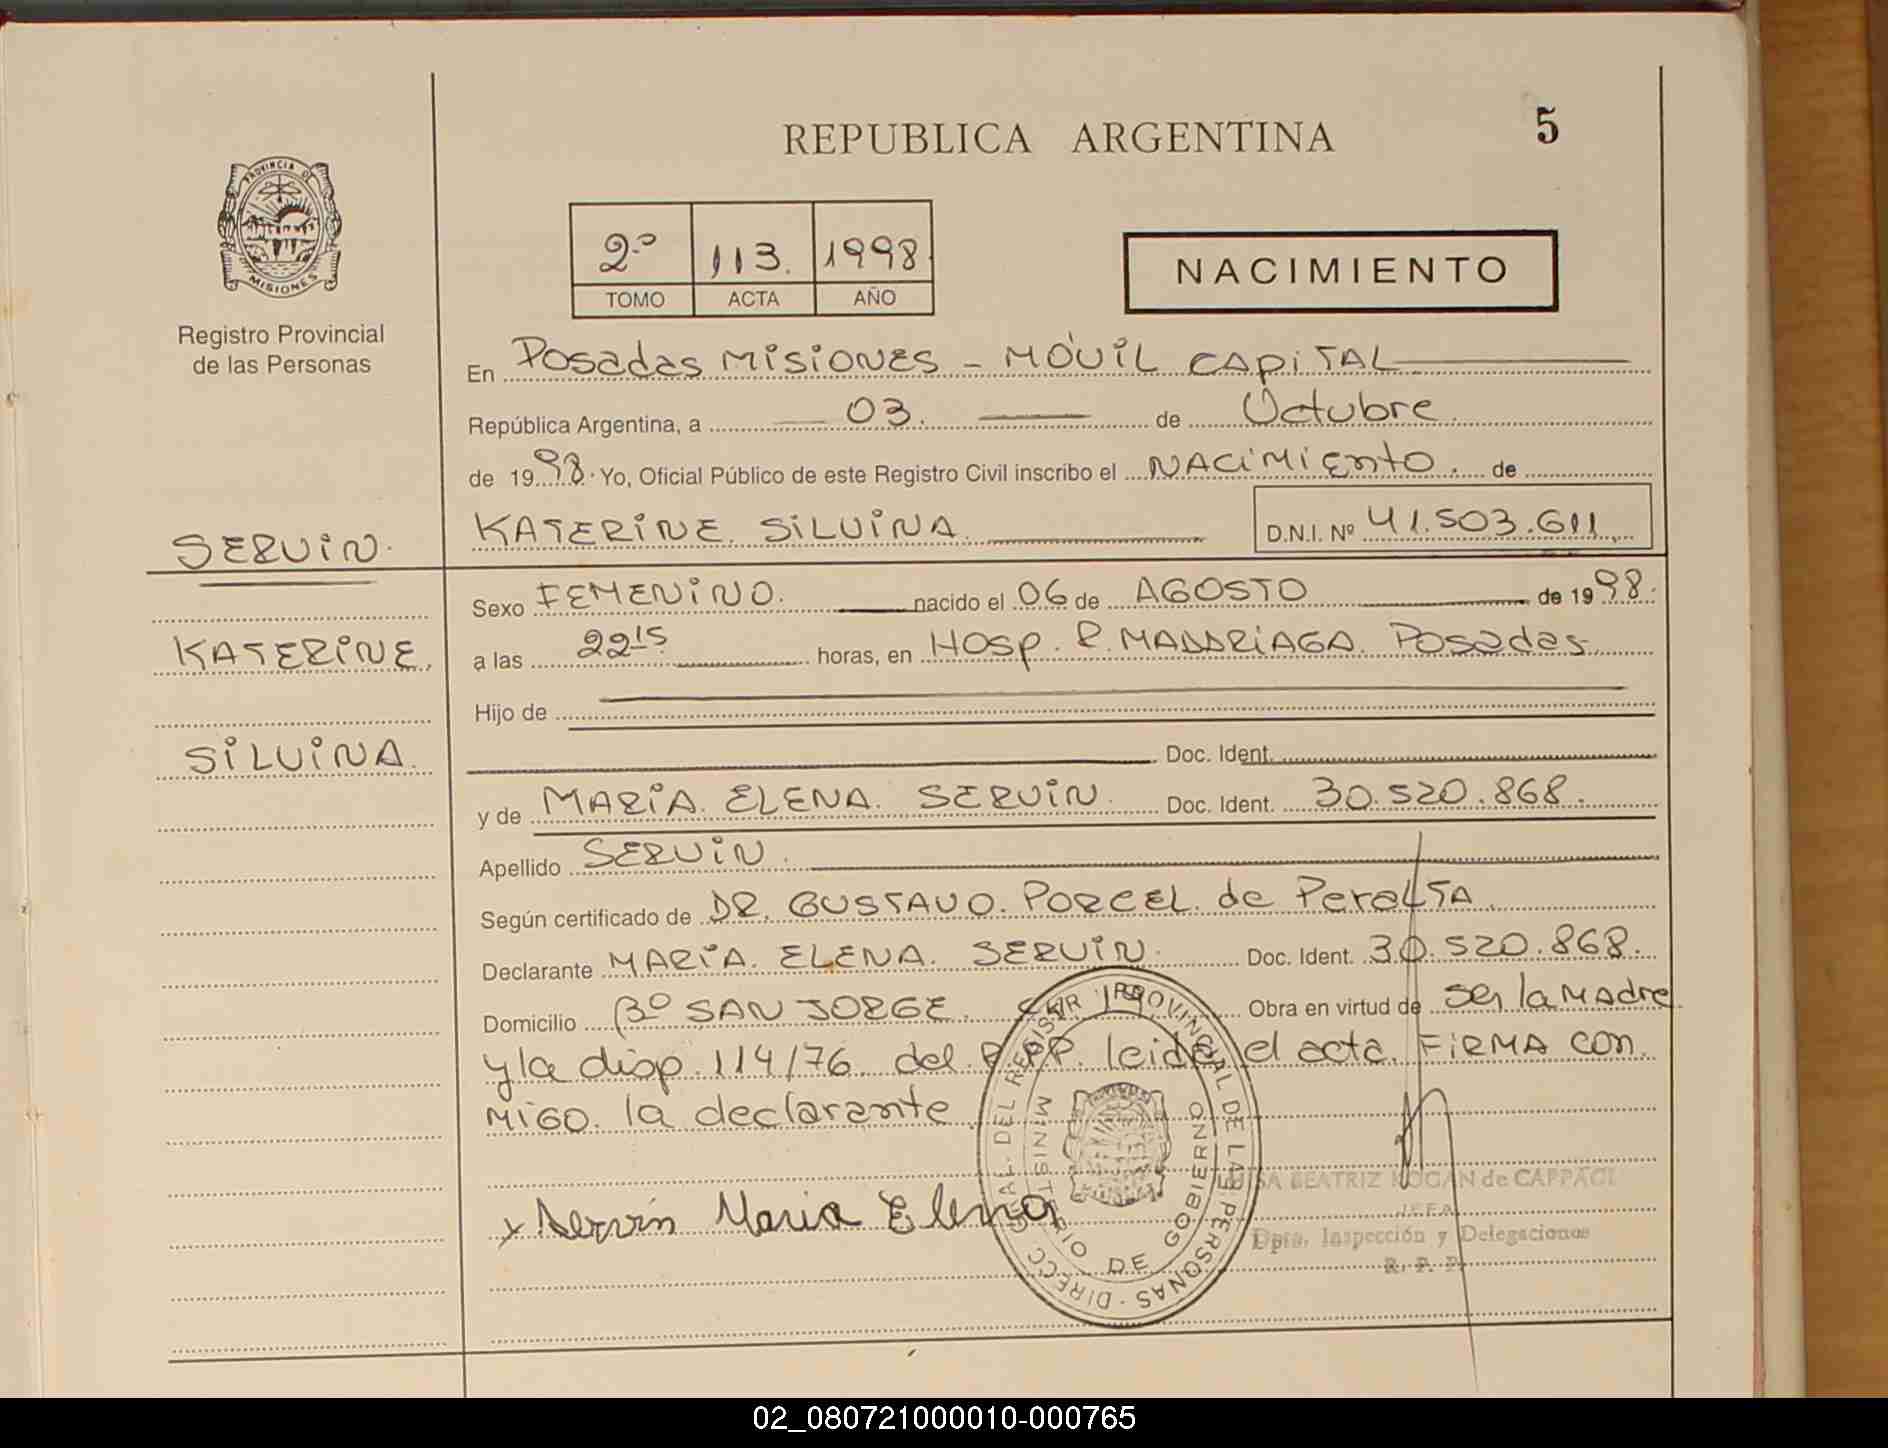 REPUBLICA ARGENTINA
5
PROVINCIA DE
MISIONES
Registro Provincial
de las Personas
2º 113. 1998
TOMO ACTA AÑO
NACIMIENTO
En Posadas Misiones - MÓVIL CAPITAL
República Argentina, a 03. de Octubre
de 1998. Yo, Oficial Público de este Registro Civil inscribo el NACIMIENTO. de
KATERINE. SILVINA. D.N.I. Nº 41.503.611
SERVIN.
KATERINE.
SILVINA.
Sexo FEMENINO. nacido el 06 de AGOSTO de 1998.
a las 22¹⁵ horas, en Hosp. R. MADARIAGA. Posadas
Hijo de
Doc. Ident.
y de MARÍA. ELENA. SERVIN. Doc. Ident. 30.520.868.
Apellido SERVIN.
Según certificado de DR. GUSTAVO. PORCEL. de PERALTA.
Declarante MARÍA. ELENA. SERVIN. Doc. Ident. 30.520.868.
Domicilio Bº SAN JORGE. Obra en virtud de ser la Madre
y la disp. 114/76 del R.P.P. leida el acta. FIRMA con
MIGO. la declarante.
x Servín Maria Elena
DIRECC. GRAL. DEL REGISTR. PROVINCIAL DE LAS PERSONAS
MINISTERIO DE GOBIERNO
LUISA BEATRIZ KOGAN de CAPPACI
JEFA
Dpto. Inspección y Delegaciones
R. P. P.
02_080721000010-000765